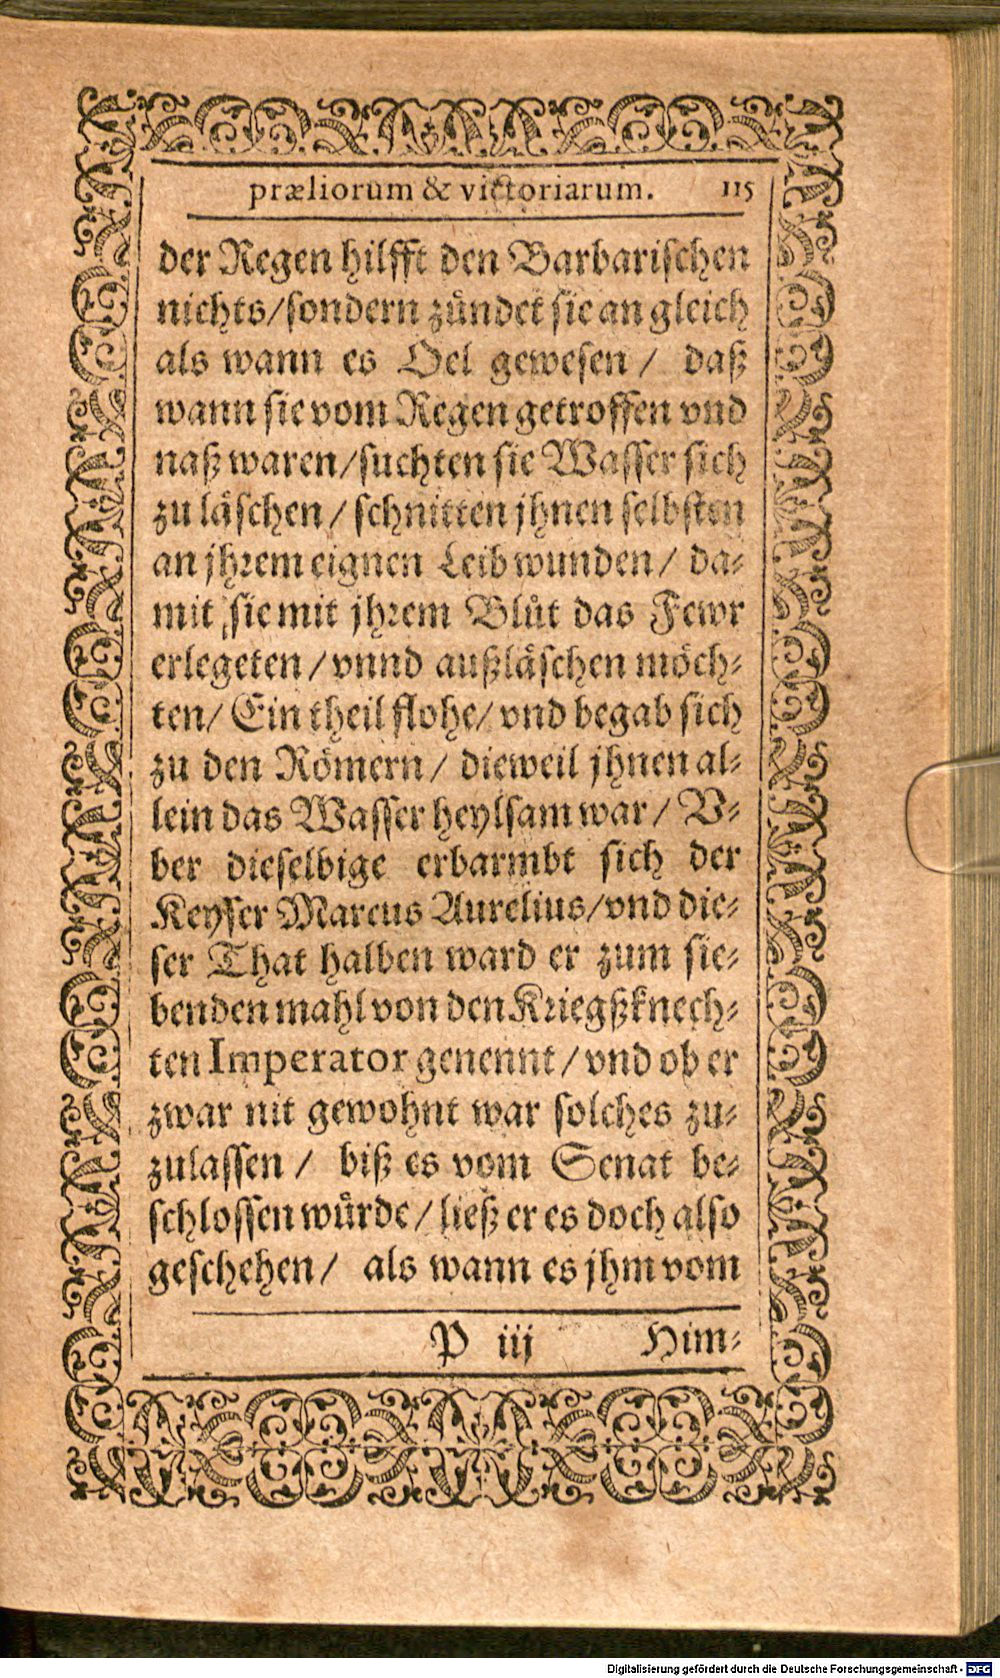 præliorum & victoriarum. 115
der Regen hilfft den Barbarischen
nichts/sondern zündet sie an gleich
als wann es Oel gewesen / daß
wann sie vom Regen getroffen vnd
naß waren/suchten sie Wasser sich
zu läschen/schnitten jhnen selbsten
an jhrem eignen Leib wunden/ da-
mit sie mit jhrem Blůt das Fewr
erlegeten/vnnd außläschen möch-
ten/ Ein theil flohe/ vnd begab sich
zu den Römern/ dieweil jhnen al-
lein das Wasser heylsam war/ V-
ber dieselbige erbarmbt sich der
Keyser Marcus Aurelius/vnd die-
ser That halben ward er zum sie-
benden mahl von den Kriegßknech-
ten Imperator genennt/vnd ob er
zwar nit gewohnt war solches zu-
zulassen / biß es vom Senat be-
schlossen würde/ließ er es doch also
geschehen/ als wann es jhm vom
P iij Him-
Digitalisierung gefördert durch die Deutsche Forschungsgemeinschaft - DFG